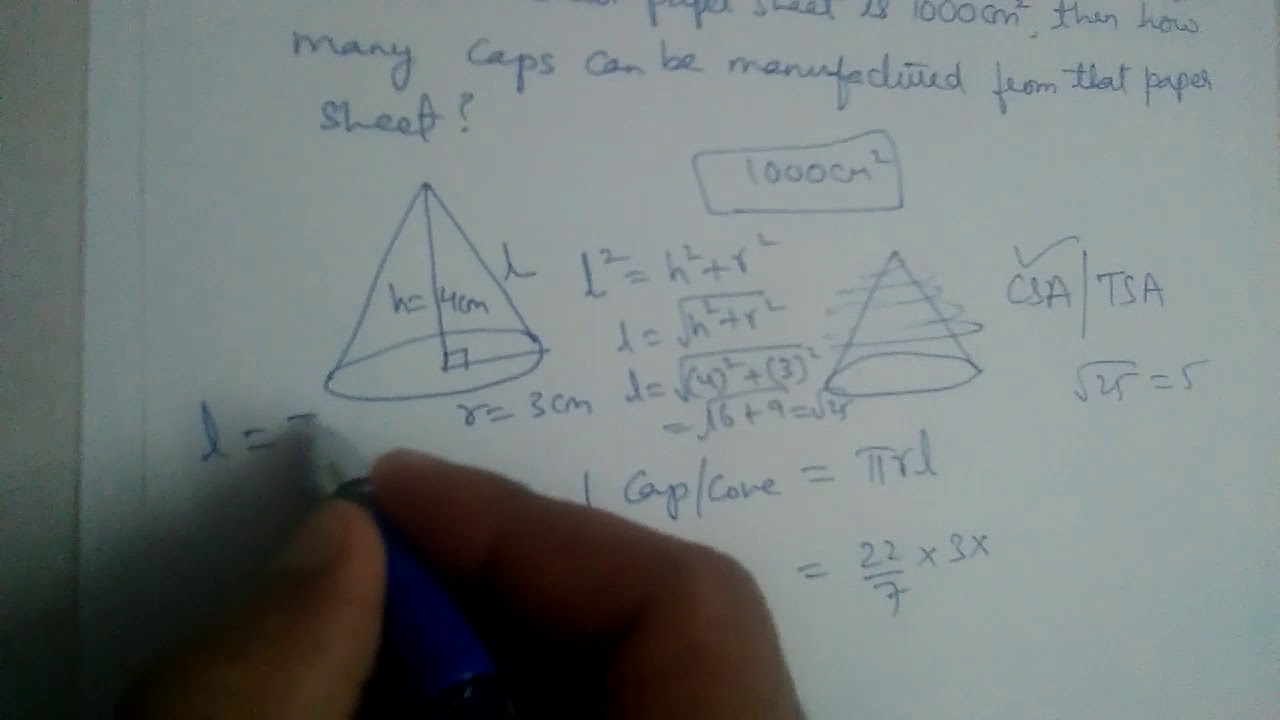 paper sheet is 1000cm², then how
many caps can be manufactured from that paper
sheet?
1000cm²
h=4cm
l
r= 3cm
l² = h²+r²
l = √h²+r²
l= √(4)²+(3)²
= √16+9 = √25
CSA/TSA
√25 = 5
l =
1 Cap/Cone = πrl
= 22/7 × 3×